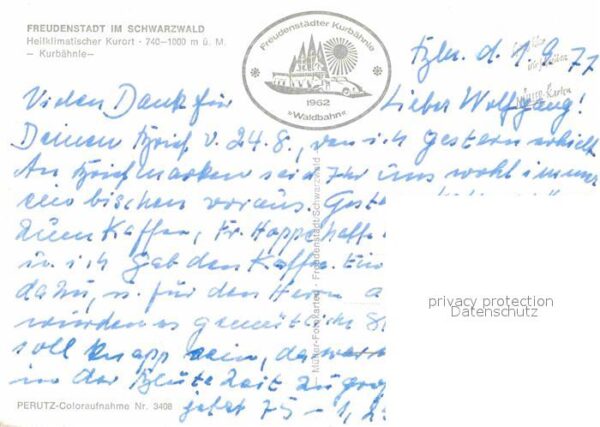 FREUDENSTADT IM SCHWARZWALD
Heilklimatischer Kurort · 740-1000 m ü. M.
— Kurbähnle—
Freudenstädter Kurbähnle
1962
»Waldbahn«
d. 1.9.77
Vielen Dank für Lieber Wolfgang!
Deinen Brief v. 24.8., den ich gestern erhielt
An Briefmarken seid Ihr uns wohl immer
ein bischen voraus. Gest
zum Kaffee, Fr. Hoppe
u. ich gab den Kaffee. Ein
dazu, u. für den Herrn
würden es gemütliche
soll knapp sein, da
in der Blüte Zeit zu
jetzt 75 - 1,2
Müller-Fotokarten · Freudenstadt-Schwarzwald
privacy protection
Datenschutz
PERUTZ-Coloraufnahme Nr. 3408